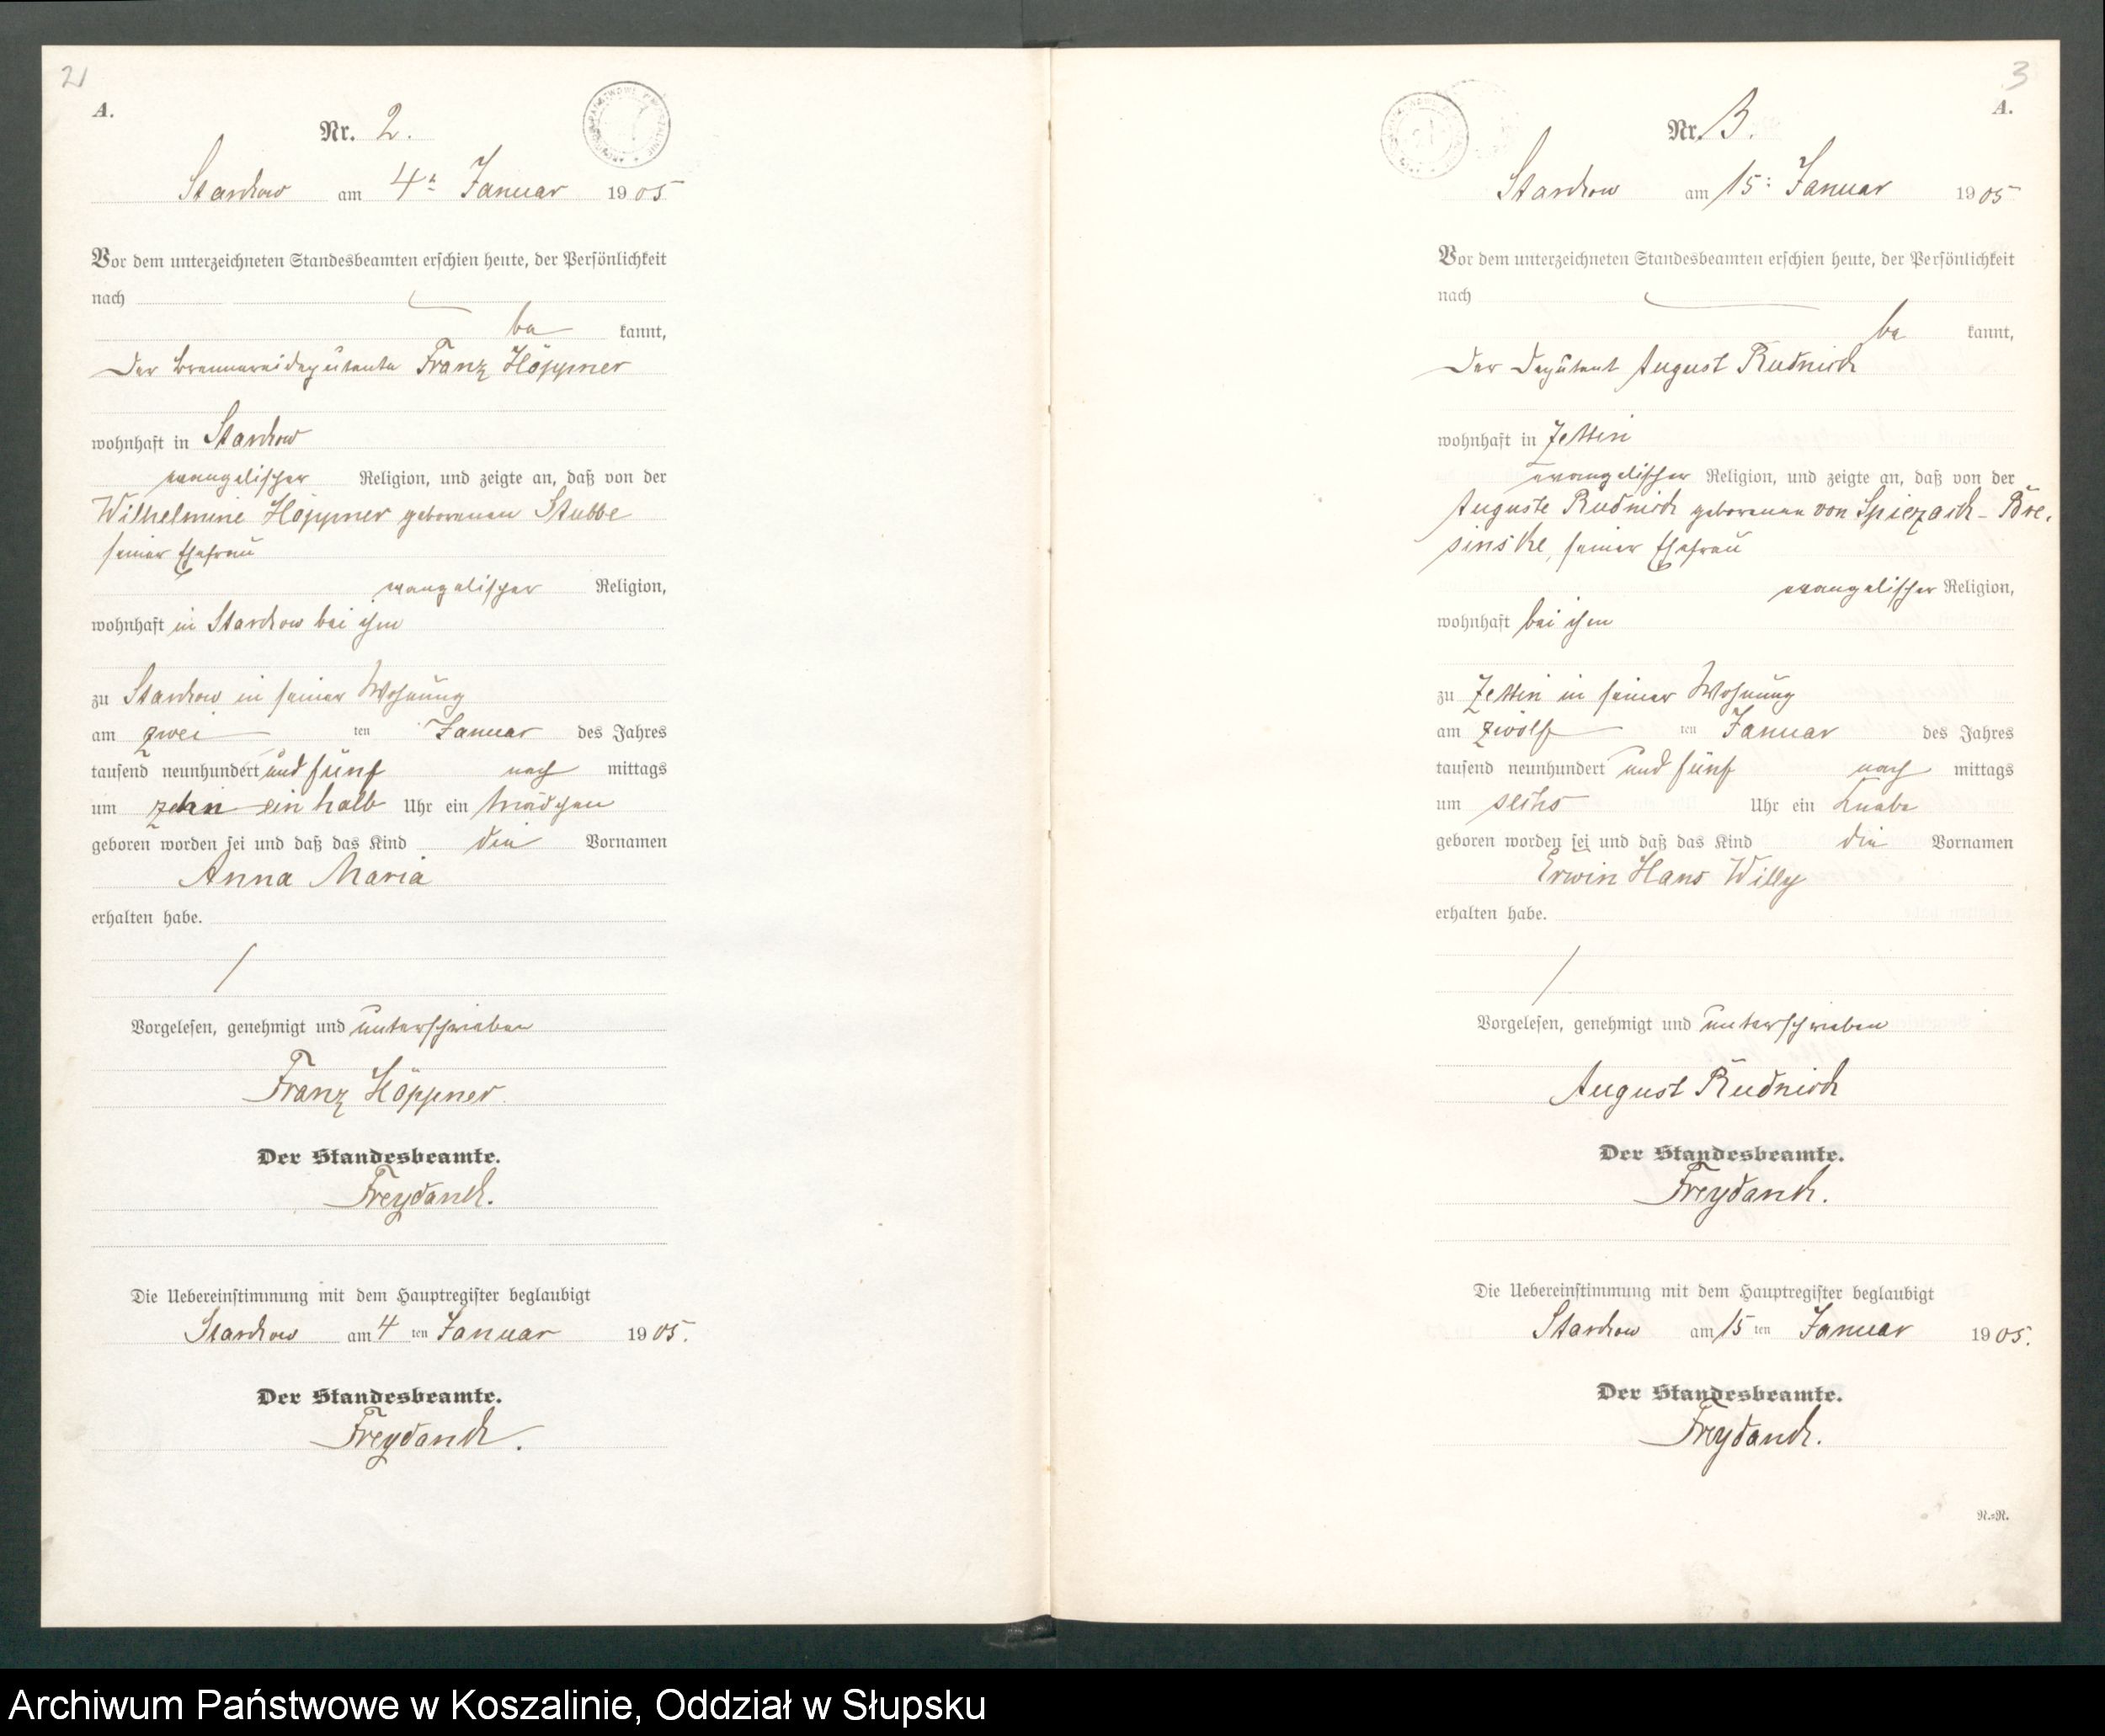 21
A.
Nr. 2.
Starkow am 4ten Januar 1905
Vor dem unterzeichneten Standesbeamten erschien heute, der Persönlichkeit
nach
be kannt,
der Brennereideputante Franz Höppner
wohnhaft in Starkow
evangelischer Religion, und zeigte an, daß von der
Wilhelmine Höppner geborenen Stubbe
seiner Ehefrau
evangelischer Religion,
wohnhaft in Starkow bei ihm
zu Starkow in seiner Wohnung
am zwei ten Januar des Jahres
tausend neunhundert und fünf nach mittags
um zehn ein halb Uhr ein Mädchen
geboren worden sei und daß das Kind die Vornamen
Anna Maria
erhalten habe.
Vorgelesen, genehmigt und unterschrieben
Franz Höppner.
Der Standesbeamte.
Freydanck.
Die Uebereinstimmung mit dem Hauptregister beglaubigt
Starkow am 4 ten Januar 1905.
Der Standesbeamte.
Freydanck.
3
A.
Nr. 3.
Starkow am 15: Januar 1905
Vor dem unterzeichneten Standesbeamten erschien heute, der Persönlichkeit
nach
be kannt,
der Deputant August Rudnick
wohnhaft in Zettin
evangelischer Religion, und zeigte an, daß von der
Auguste Rudnick geborenen von
seiner Ehefrau
evangelischer Religion,
wohnhaft bei ihm
zu Zettin in seiner Wohnung
am zwölf ten Januar des Jahres
tausend neunhundert und fünf nach mittags
um sechs Uhr ein Knabe
geboren worden sei und daß das Kind die Vornamen
Erwin Hans Willy
erhalten habe.
Vorgelesen, genehmigt und unterschrieben
August Rudnick
Der Standesbeamte.
Freydanck.
Die Uebereinstimmung mit dem Hauptregister beglaubigt
Starkow am 15 ten Januar 1905.
Der Standesbeamte.
Freydanck.
N.=N.
Archiwum Państwowe w Koszalinie, Oddział w Słupsku